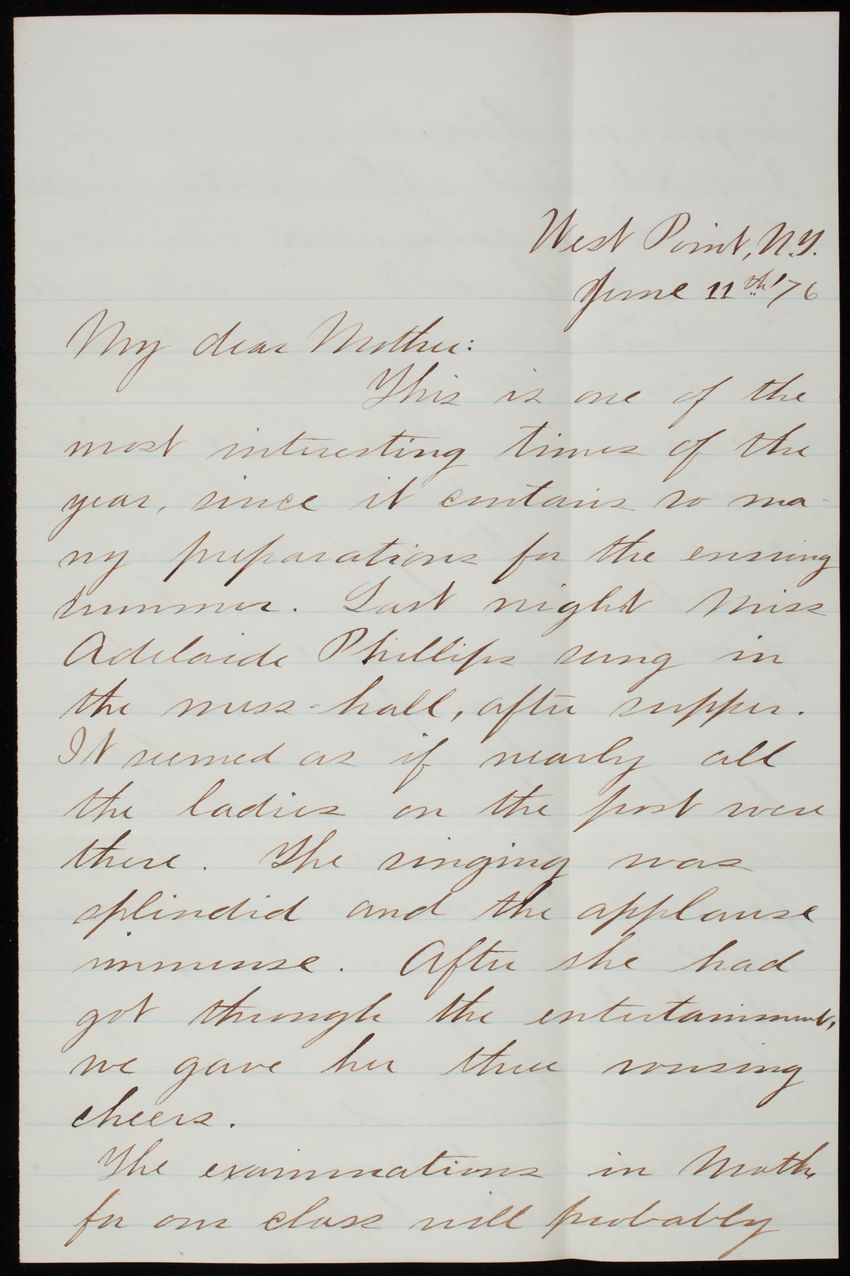 West Point, N.Y.
June 11th '76
My dear Mother:
This is one of the
most interesting times of the
year, since it contains so ma-
ny preparations for the ensuing
summer. Last night Miss
Adelaide Phillips sung in
the mess-hall, after supper.
It seemed as if nearly all
the ladies on the post were
there. The singing was
splindid and the applause
immense. After she had
got through the entertainment,
we gave her three rousing
cheers.
The examinations in Math
for our class will probably